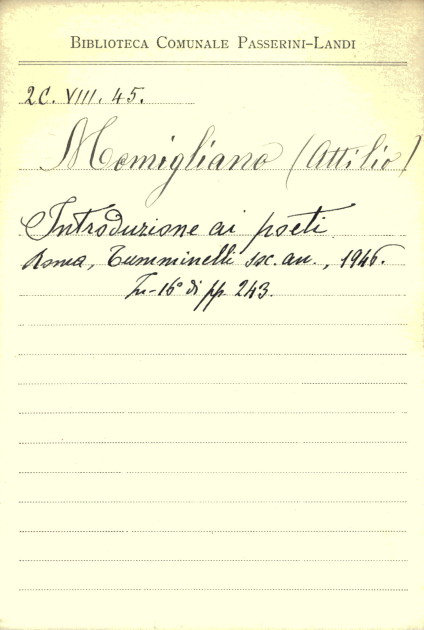 BIBLIOTECA COMUNALE PASSERINI-LANDI
2C. VIII. 45.
Momigliano (Attilio)
Introduzione ai poeti
Roma, Tumminelli soc. an., 1946.
In-16° di pp. 243.